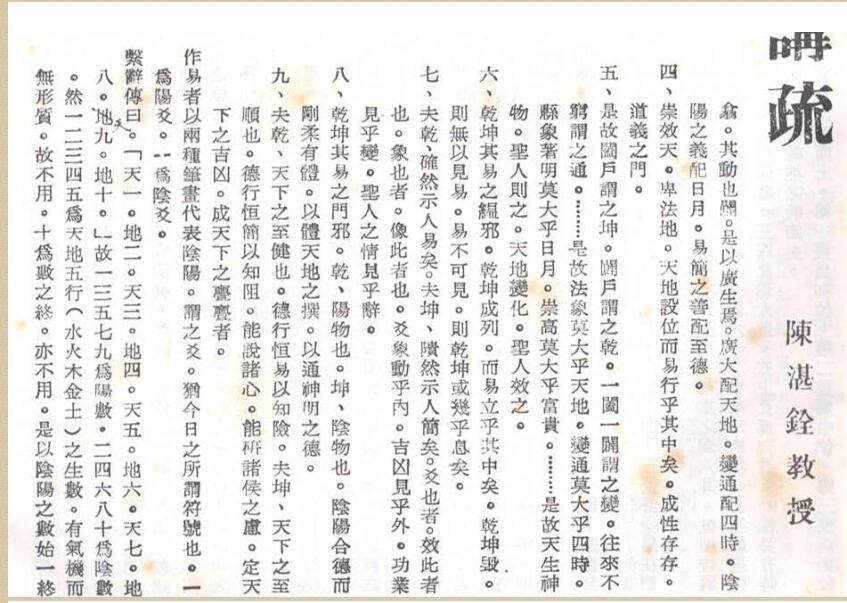 講疏
陳湛銓教授
翕。其動也闢。是以廣生焉。廣大配天地。變通配四時。陰
陽之義配日月。易簡之善配至德。
四、崇效天。卑法地。天地設位而易行乎其中矣。成性存存。
道義之門。
五、是故闔戶謂之坤。闢戶謂之乾。一闔一闢謂之變。往來不
窮謂之通。………是故法象莫大乎天地。變通莫大乎四時。
縣象著明莫大乎日月。崇高莫大乎富貴。………是故天生神
物。聖人則之。天地變化。聖人效之。
六、乾坤其易之縕邪。乾坤成列。而易立乎其中矣。乾坤毀。
則無以見易。易不可見。則乾坤或幾乎息矣。
七、夫乾、確然示人易矣。夫坤、隤然示人簡矣。爻也者。效此者
也。象也者。像此者也。爻象動乎內。吉凶見乎外。功業
見乎變。聖人之情見乎辭。
八、乾坤其易之門邪。乾、陽物也。坤、陰物也。陰陽合德而
剛柔有體。以體天地之撰。以通神明之德。
九、夫乾、天下之至健也。德行恒易以知險。夫坤、天下之至
順也。德行恒簡以知阻。能說諸心。能研諸侯之慮。定天
下之吉凶。成天下之亹亹者。
作易者以兩種筆畫代表陰陽。謂之爻。猶今日之所謂符號也。一
爲陽爻。⚋爲陰爻。
繫辭傳曰。「天一。地二。天三。地四。天五。地六。天七。地
八。天地九。地十。」故一三五七九爲陽數。二四六八十爲陰數
。然一二三四五爲天地五行(水火木金土)之生數。有氣機而
無形質。故不用。十爲數之終。亦不用。是以陰陽之數始一終